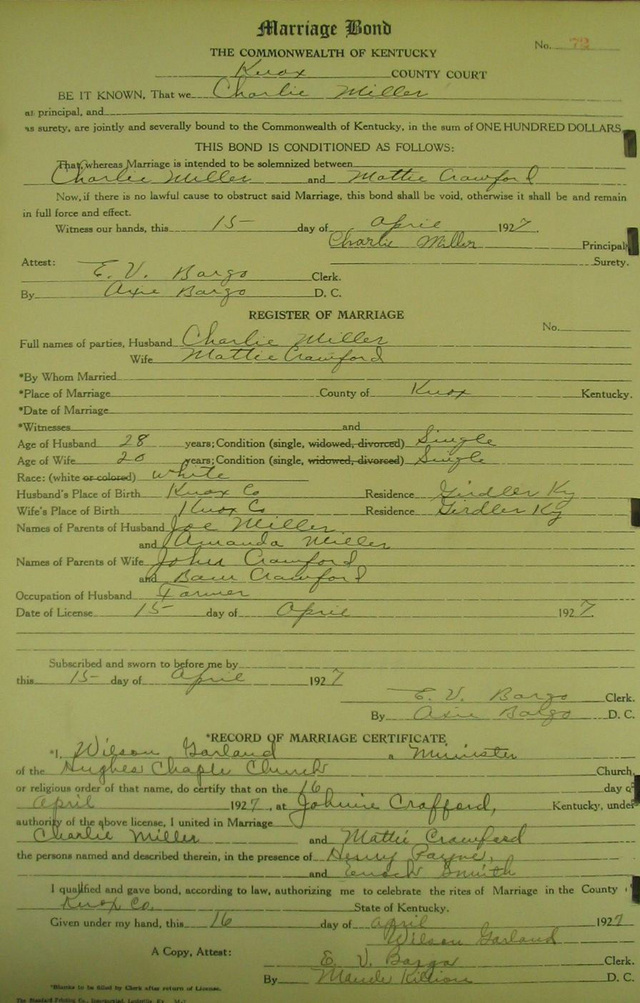 Marriage Bond
No. 72
THE COMMONWEALTH OF KENTUCKY
Knox COUNTY COURT
BE IT KNOWN, That we Charlie Miller
as principal, and
as surety, are jointly and severally bound to the Commonwealth of Kentucky, in the sum of ONE HUNDRED DOLLARS
THIS BOND IS CONDITIONED AS FOLLOWS:
That whereas Marriage is intended to be solemnized between
Charlie Miller and Mattie Crawford
Now, if there is no lawful cause to obstruct said Marriage, this bond shall be void, otherwise it shall be and remain
in full force and effect.
Witness our hands, this 15 day of April 1927
Charlie Miller Principal
Surety.
Attest:
E. V. Bargo Clerk.
By Axie Bargo D. C.
REGISTER OF MARRIAGE
No.
Full names of parties, Husband Charlie Miller
Wife Mattie Crawford
*By Whom Married
*Place of Marriage County of Knox Kentucky.
*Date of Marriage
*Witnesses and
Age of Husband 28 years; Condition (single, widowed, divorced) Single
Age of Wife 20 years; Condition (single, widowed, divorced) Single
Race: (white or colored) White
Husband's Place of Birth Knox Co Residence Girdler Ky
Wife's Place of Birth Knox Co Residence Girdler Ky
Names of Parents of Husband Joe Miller
and Amanda Miller
Names of Parents of Wife John Crawford
and Bam Crawford
Occupation of Husband Farmer
Date of License 15 day of April 1927
Subscribed and sworn to before me by
this 15 day of April 1927
E. V. Bargo Clerk.
By Axie Bargo D. C.
*RECORD OF MARRIAGE CERTIFICATE
*I, Wilson Garland a Minister
of the Hughes Chaple Church Church,
or religious order of that name, do certify that on the 16 day of
April 1927, at Johnie Crafford, Kentucky, under
authority of the above license, I united in Marriage
Charlie Miller and Mattie Crawford
the persons named and described therein, in the presence of Henry Payne,
and Enoch Smith
I qualified and gave bond, according to law, authorizing me to celebrate the rites of Marriage in the County
Knox Co. State of Kentucky.
Given under my hand, this 16 day of April 1927
Wilson Garland
A Copy, Attest: E. V. Bargo Clerk.
By Maude Killion D. C.
*Blanks to be filled by Clerk after return of License.
The Standard Printing Co., Incorporated, Louisville, Ky.